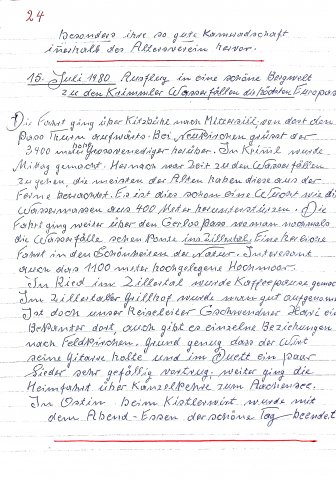 24
besonders ihre so gute Kameradschaft
innerhalb des Altersverein hervor.
15. Juli 1980 Ausflug in eine schöne Bergwelt
zu den Krimmler Wasserfällen die höchsten Europas
Die Fahrt ging über Kitzbühe nach Mittersill, von dort den
Pass Thurn aufwärts. Bei Neukirchen grüsst der
3400 meter hohe Grossvenediger herüber. In Krimml wurde
Mittag gemacht. Hernach war Zeit zu den Wasserfällen
zu gehen, die meisten der Alten haben diese aus der
Ferne betrachtet. Es ist dies schon eine Wucht wie die
Wassermassen aus 400 Meter herunterstürzen. Die
Fahrt ging weiter über den Gerlospass wo man nochmals
die Wasserfälle sehen konnte ins Zillertal. Eine herrliche
Fahrt in den Schönheiten der Natur. Interesant
auch das 1100 meter hochgelegene Hochmoor.
In Ried im Zillertal wurde Kaffeepause gemacht
Im Zillertaler Grillhof wurde man gut aufgenommen
Ist doch unser Reiseleiter Gschwendner Xari ein
Bekannter dort, auch gibt es einzelne Beziehungen
nach Feldkirchen. Grund genug dass der Wirt
seine Gitarre holte und im Duett ein paar
Lieder sehr gefällig vortrug, weiter ging die
Heimfahrt über Kanzelkehre zum Aachensee.
In Ostin beim Kistlerwirt wurde mit
dem Abend-Essen der schöne Tag beendet